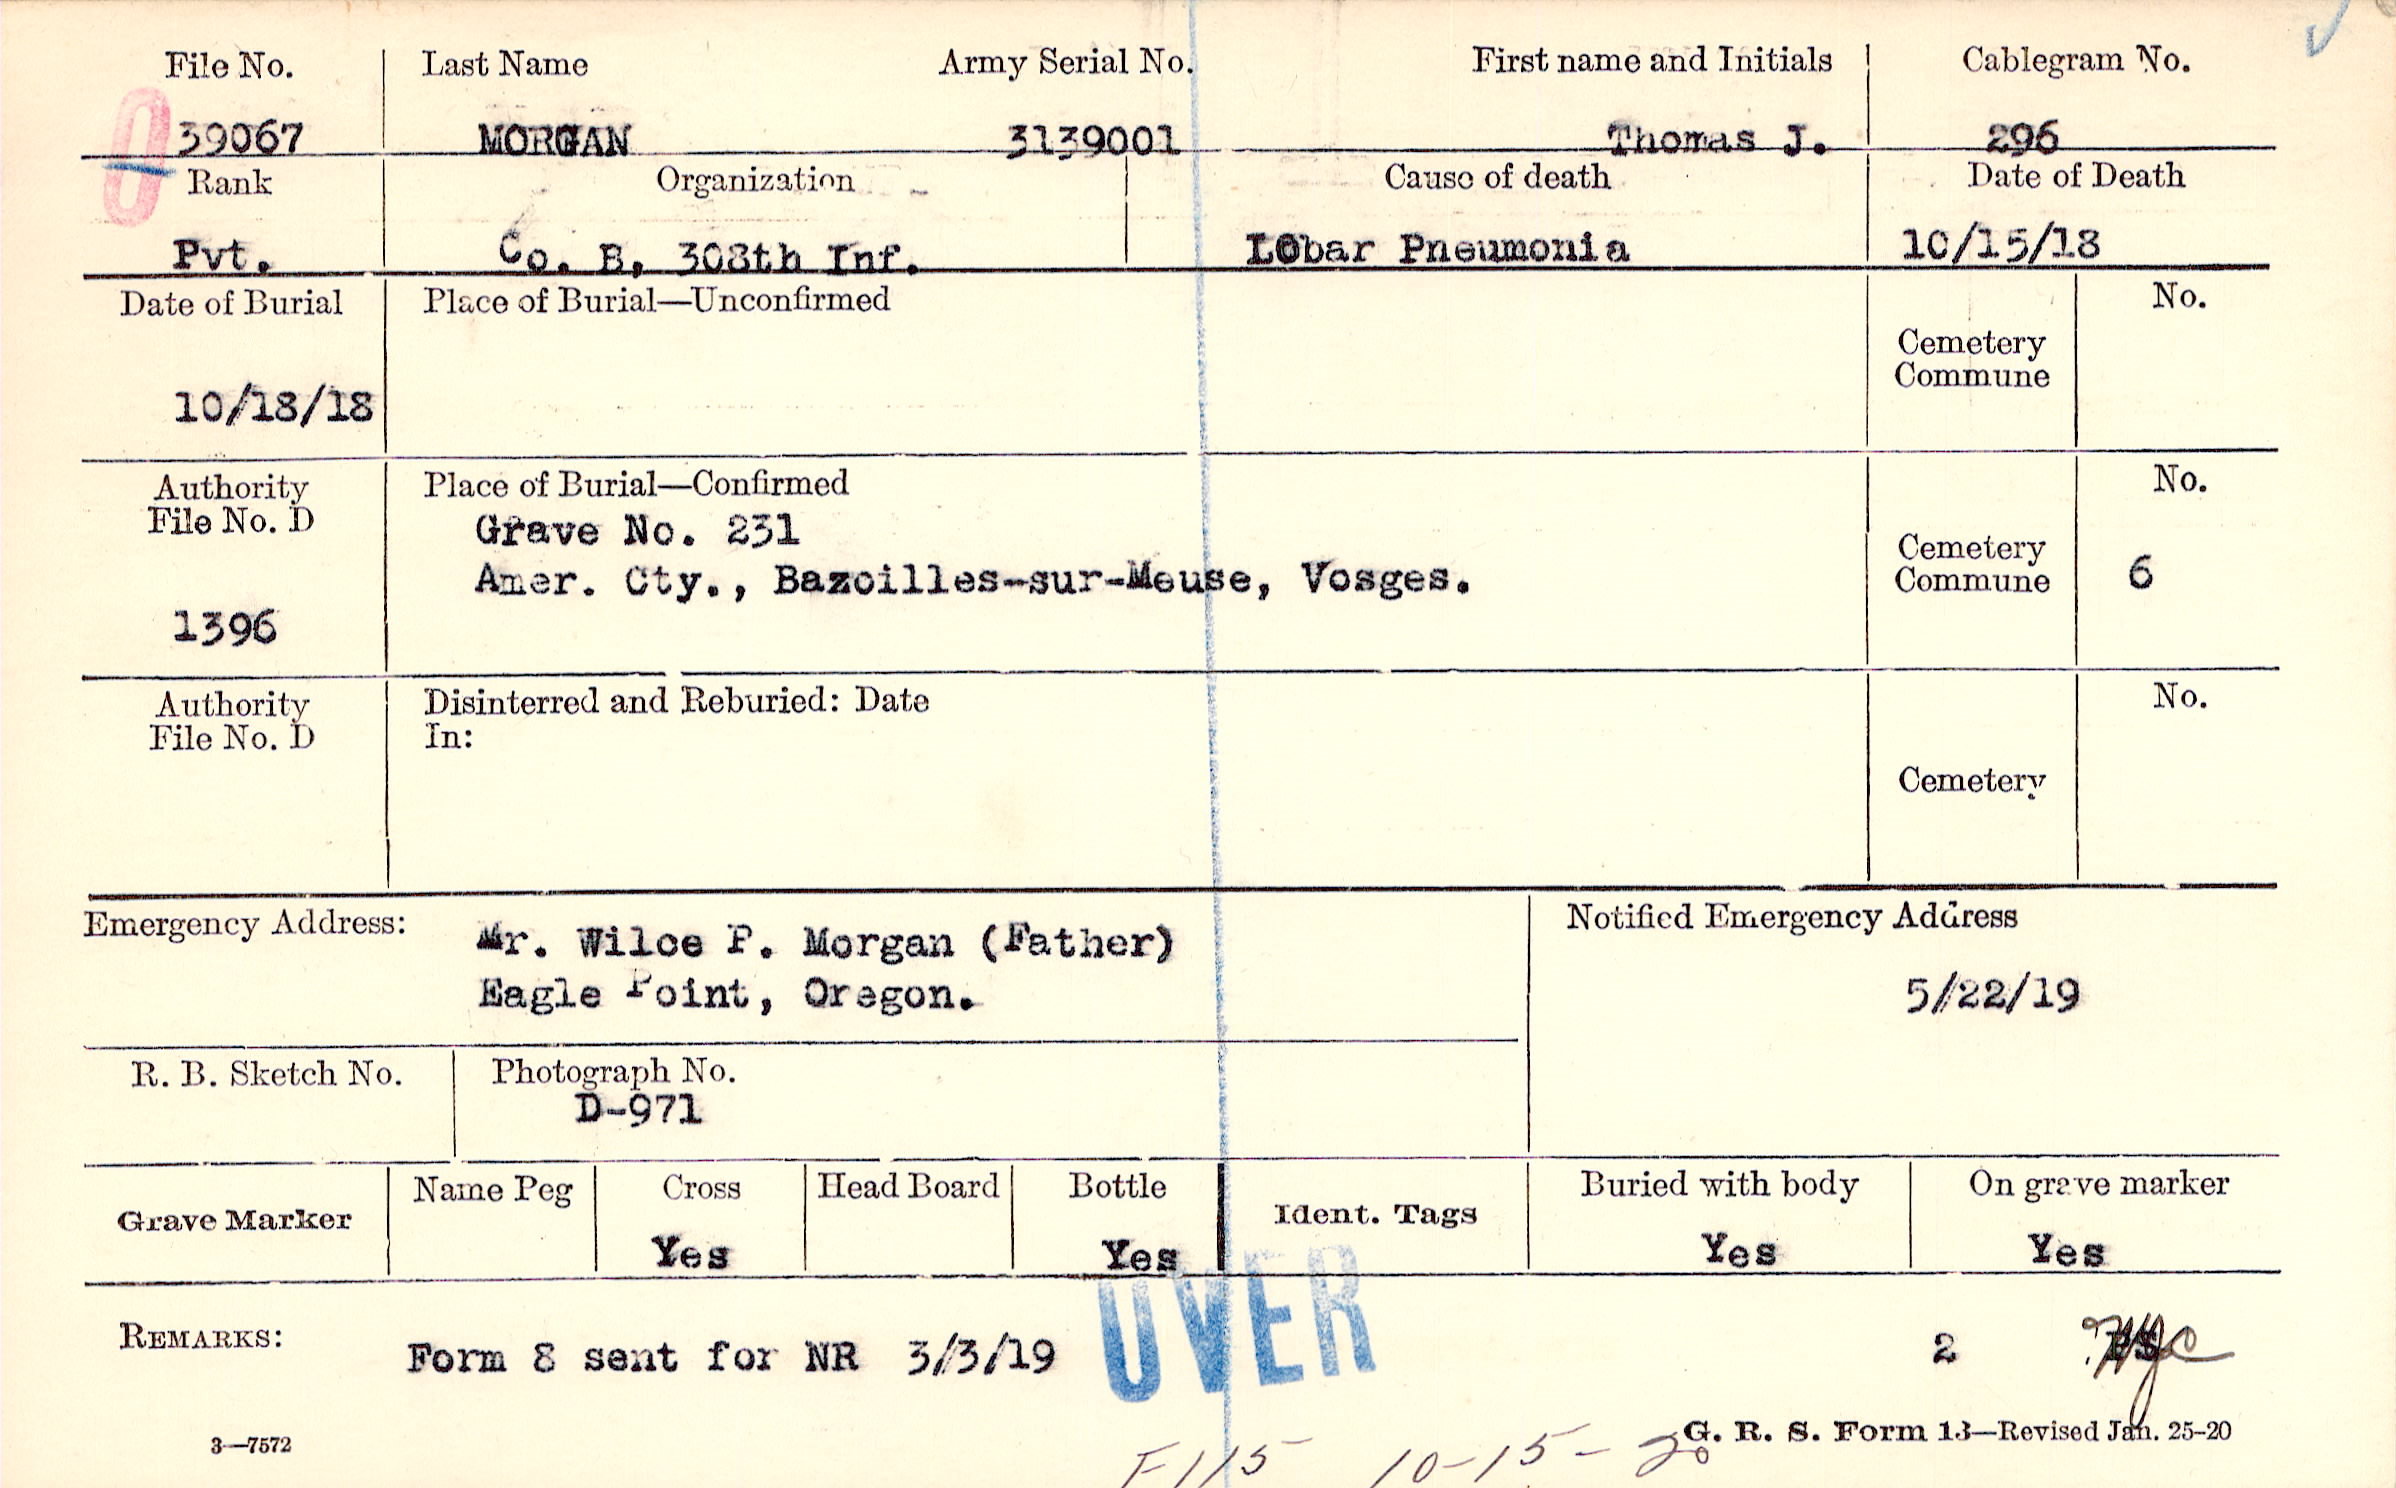 File No. Last Name Army Serial No. First name and Initials Cablegram No.
39067 MORGAN 3139001 Thomas J. 296
Rank Organization Cause of death Date of Death
Pvt. Co. B, 308th Inf. LObar Pneumonia 10/15/18
Date of Burial Place of Burial—Unconfirmed No.
Cemetery
Commune
10/18/18
Authority Place of Burial—Confirmed No.
File No. D
Grave No. 231
Cemetery
Amer. Cty., Bazoilles-sur-Meuse, Vosges. Commune 6
1396
Authority Disinterred and Reburied: Date No.
File No. D In:
Cemetery
Emergency Address: Mr. Wilce P. Morgan (Father) Notified Emergency Address
Eagle Point, Oregon. 5/22/19
R. B. Sketch No. Photograph No.
D-971
Grave Marker Name Peg Cross Head Board Bottle Ident. Tags Buried with body On grave marker
Yes Yes Yes Yes
REMARKS: Form 8 sent for NR 3/3/19 OVER 2
3—7572 G. R. S. Form 13—Revised Jan. 25-20
F115 10-15-20